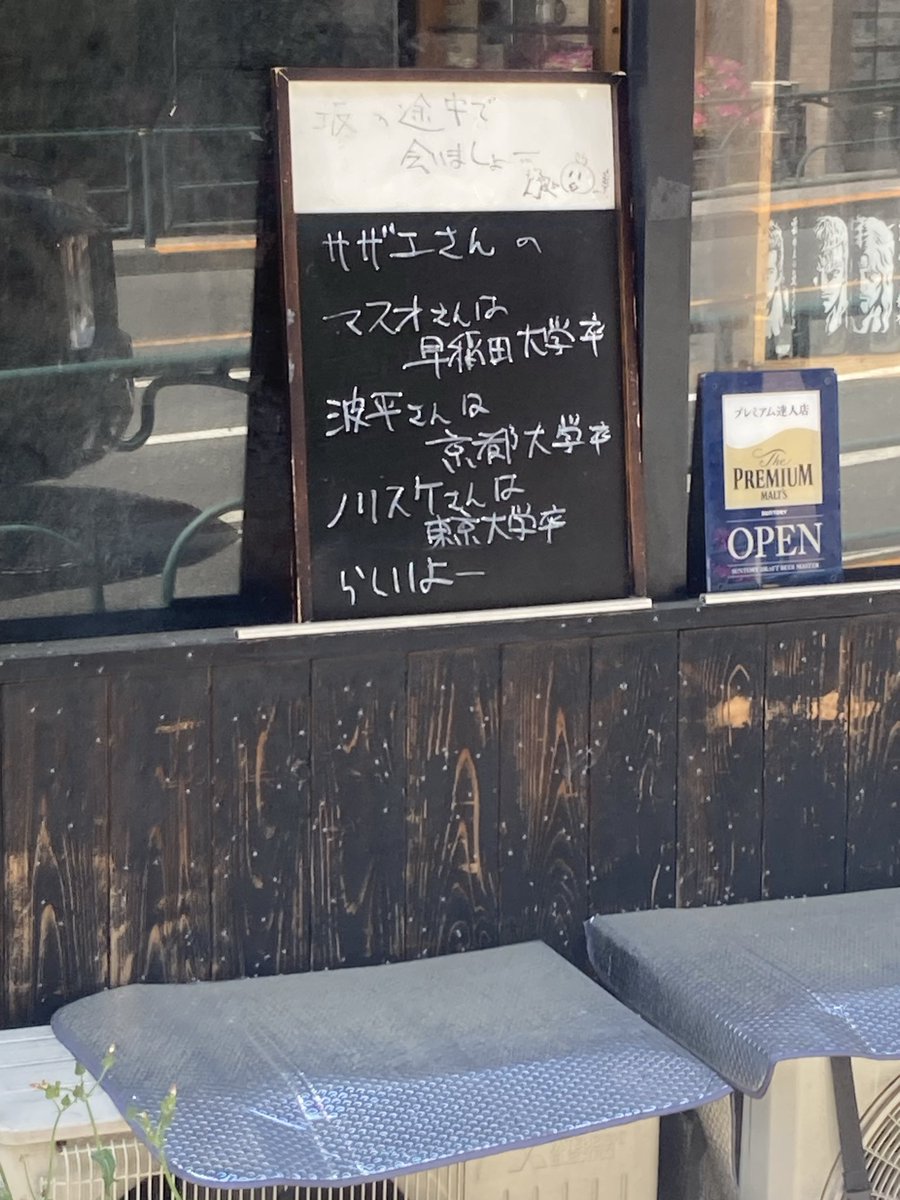 坂の途中で
会いましょー
サザエさんの
マスオさんは
早稲田大学卒
波平さんは
京都大学卒
ノリスケさんは
東京大学卒
らしいよー
プレミアム達人店
The
PREMIUM
MALT'S
SUNTORY
OPEN
SUNTORY DRAFT BEER MASTER